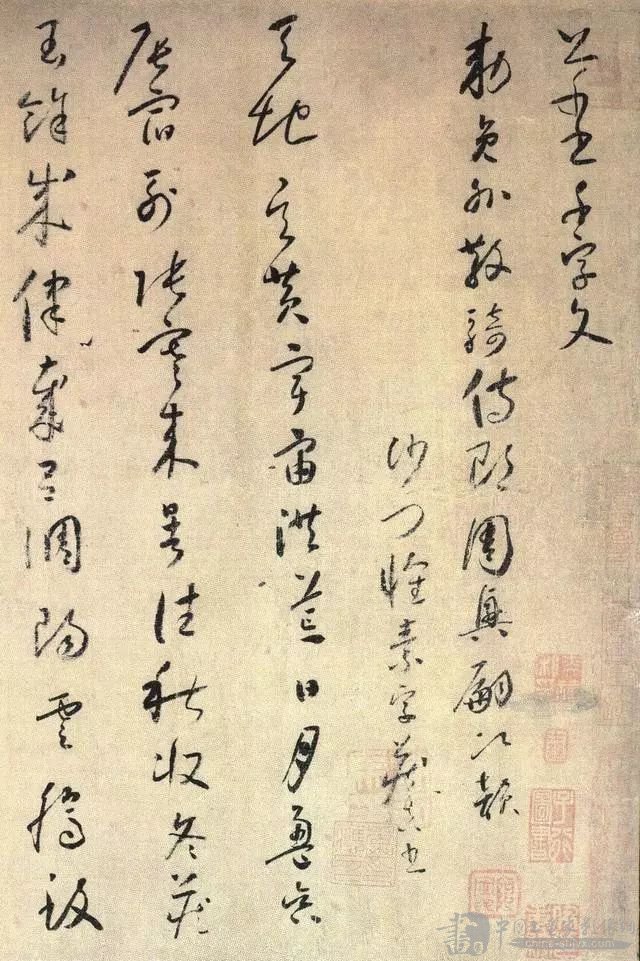 千字文
勅員外散騎侍郎周興嗣次韻
沙門懷素字藏真
天地玄黃宇宙洪荒日月盈昃
辰宿列張寒來暑往秋收冬藏
閏餘成律歲呂調陽雲騰致